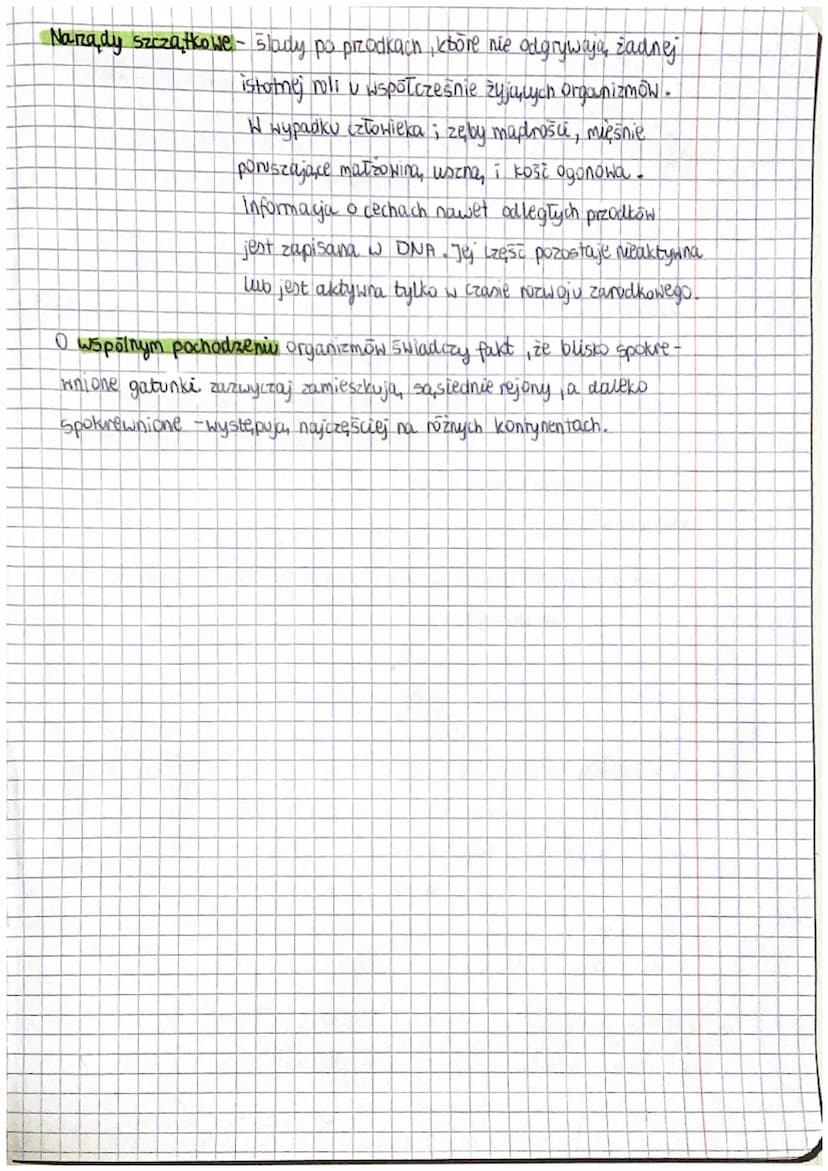 Narządy szczątkowe - ślady po przodkach, które nie odgrywają żadnej
istotnej roli u współcześnie żyjących organizmów.
W wypadku człowieka ; zęby mądrości, mięśnie
poruszające małżowiną uszną i kość ogonowa.
Informacja o cechach nawet odległych przodków
jest zapisana w DNA. Jej część pozostaje nieaktywna
lub jest aktywna tylko w czasie rozwoju zarodkowego.
O wspólnym pochodzeniu organizmów świadczy fakt, że blisko spokre-
wnione gatunki zazwyczaj zamieszkują sąsiednie rejony, a daleko
spokrewnione - występują najczęściej na różnych kontynentach.